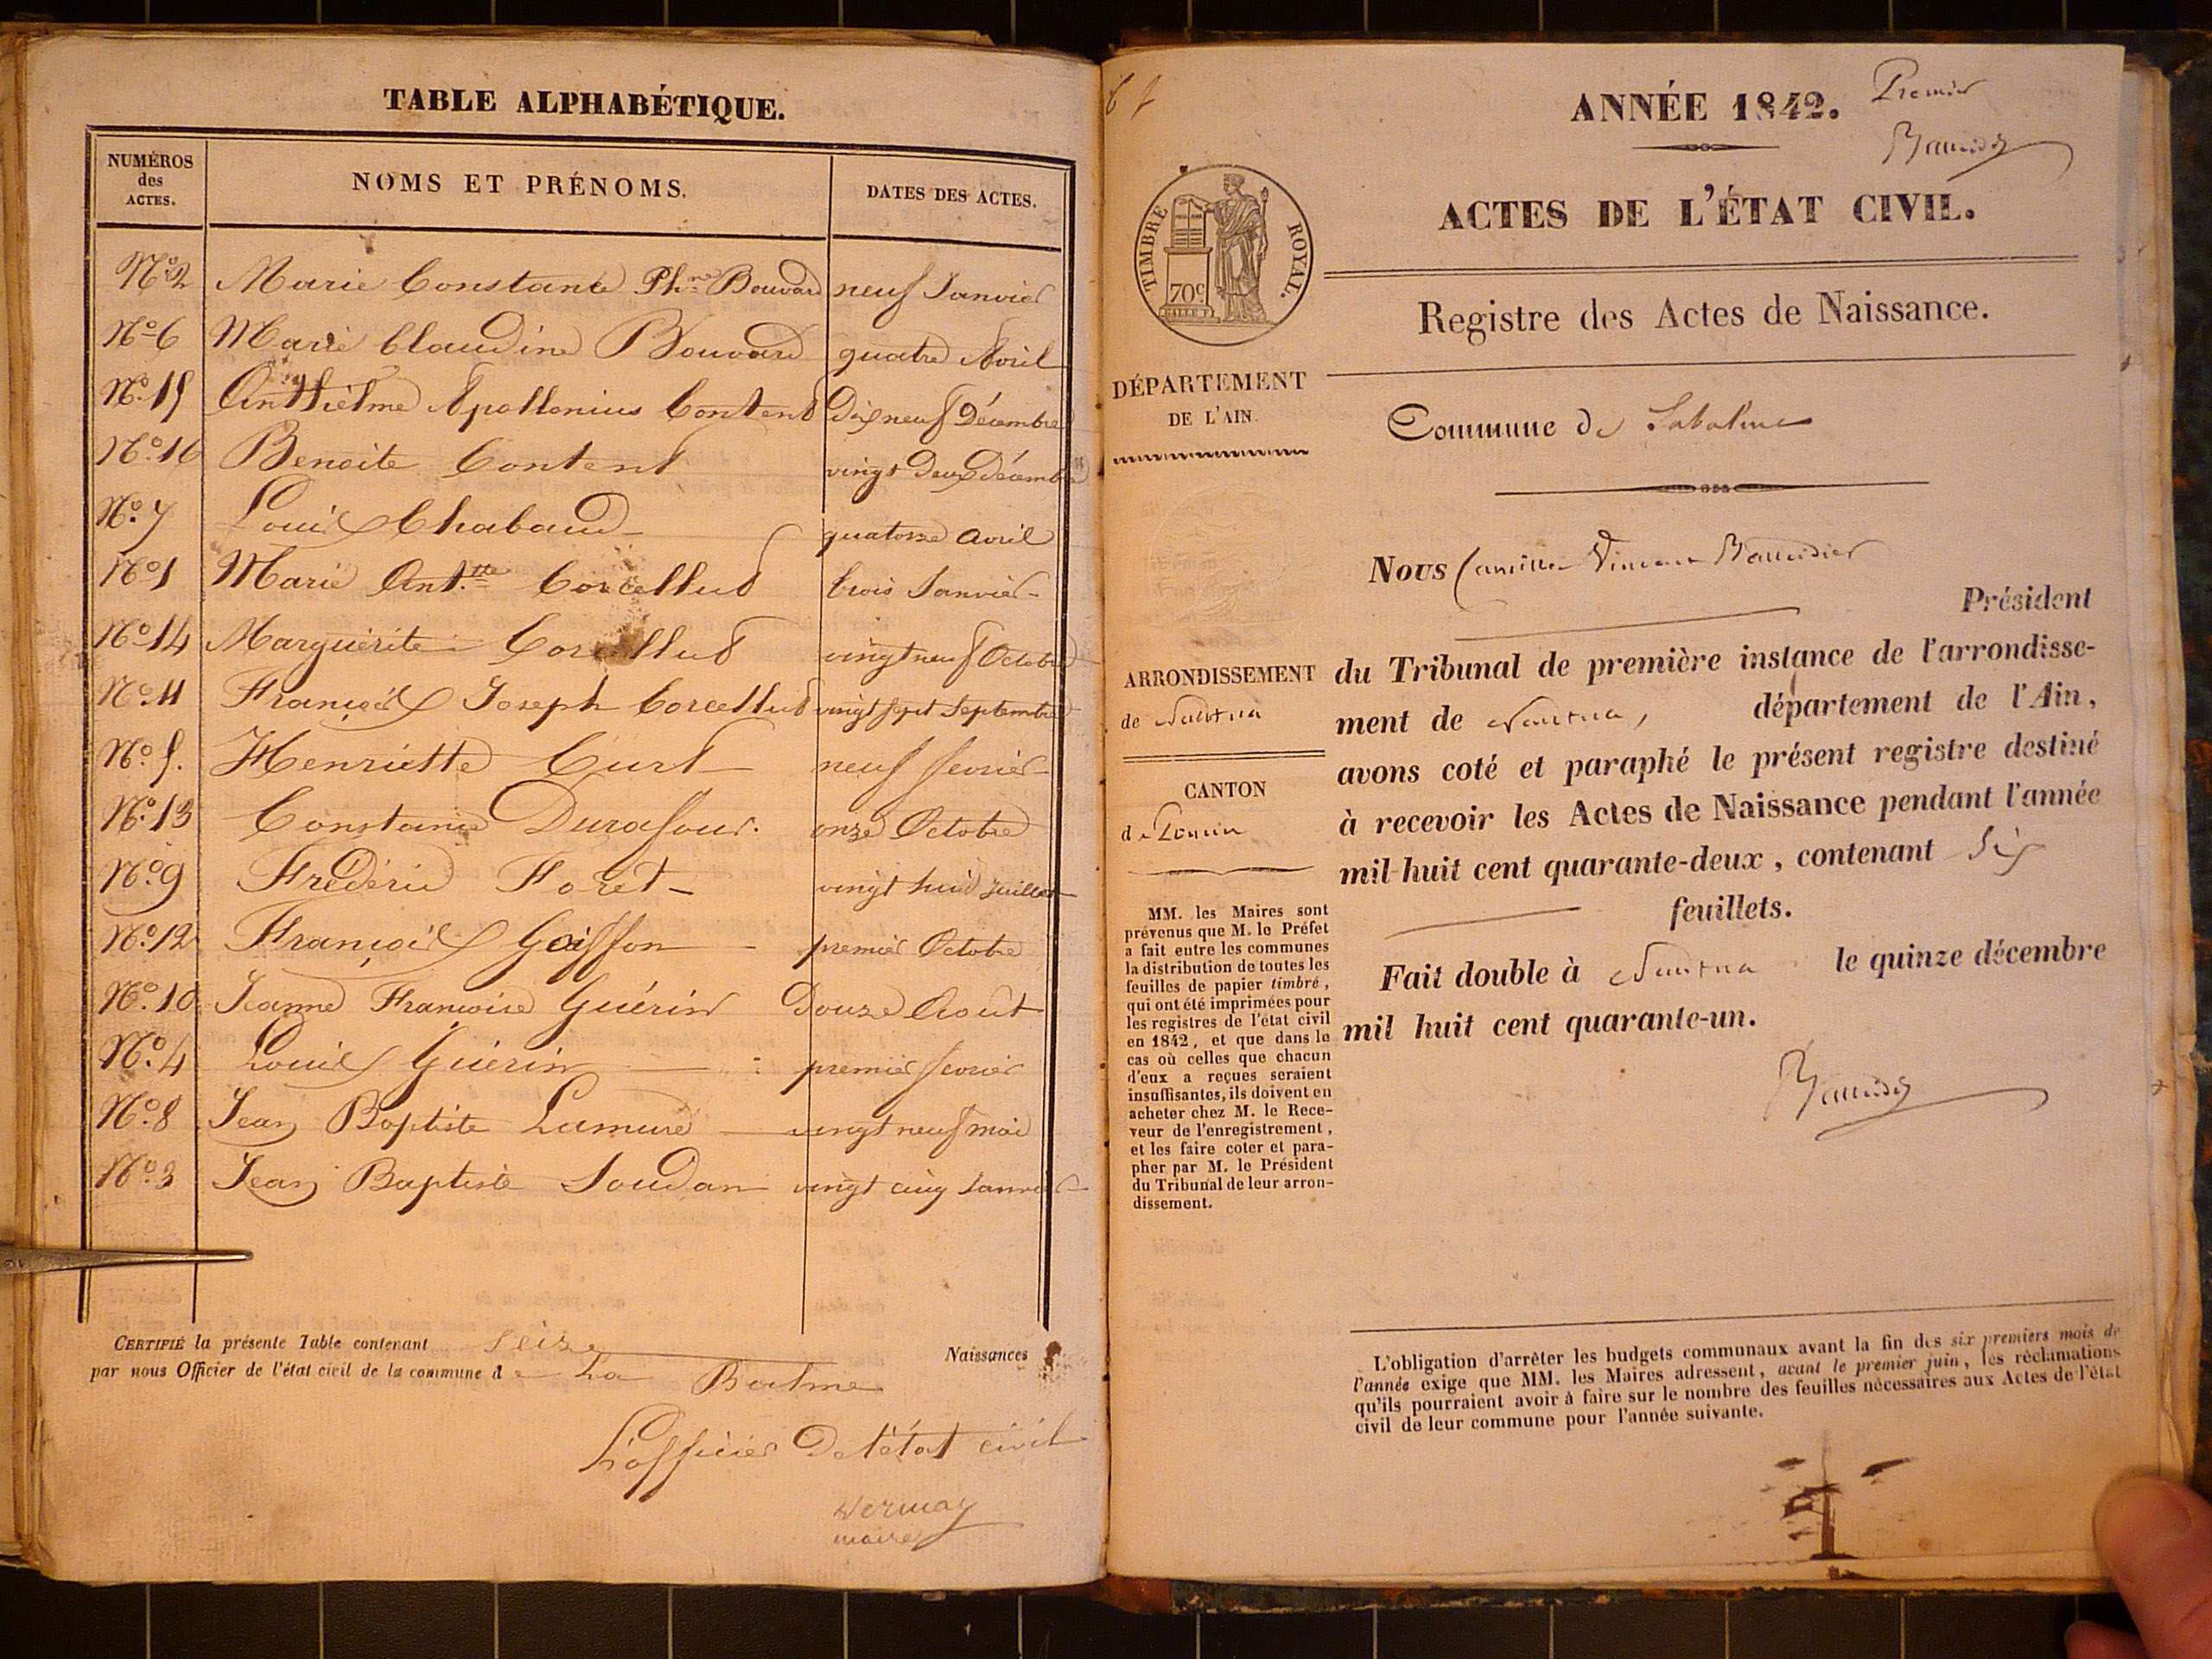 TABLE ALPHABÉTIQUE.
NUMÉROS des ACTES. NOMS ET PRÉNOMS. DATES DES ACTES.
N.o 2 Marie Constance Ph.ne Bouvard neuf Janvier
N.o 6 Marie Claudine Bouvard quatre Avril
N.o 15 Anthelme Apollonius Content Dix neuf Décembre
N.o 16 Benoite Content vingt deux décembre
N.o 7 Louis Chabaud quatorze avril
N.o 1 Marie Ant.tte Corcellud trois Janvier
N.o 14 Marguerite Corcellud vingt neuf Octobre
N.o 11 François Joseph Corcellud vingt sept Septembre
N.o 5. Henriette Curt neuf fevrier
N.o 13 Constance Durafour. onze Octobre
N.o 9 Frédéric Foret vingt huit Juillet
N.o 12 François Goiffon premier Octobre
N.o 10 Jeanne Francoise Guérin Douze Août
N.o 4 Louis Guérin premier fevrier
N.o 8 Jean Baptiste Lamure vingt neuf mai
N.o 3 Jean Baptiste Soudan vingt cinq Janvier
CERTIFIÉ la présente Table contenant Seize Naissances
par nous Officier de l'état civil de la commune de La Balme
L'officier De l'état civil
maire
ANNÉE 1842. Premier
ACTES DE L'ÉTAT CIVIL.
TIMBRE ROYAL.
70c
Registre des Actes de Naissance.
DÉPARTEMENT
DE L'AIN.
Commune de Labalme
Nous Camille Vincent
Président
du Tribunal de première instance de l'arrondisse-
ment de Nantua, département de l'Ain,
avons coté et paraphé le présent registre destiné
à recevoir les Actes de Naissance pendant l'année
mil huit cent quarante-deux, contenant Six
feuillets.
Fait double à Nantua le quinze décembre
mil huit cent quarante-un.
ARRONDISSEMENT
de Nantua
CANTON
de Poncin
MM. les Maires sont
prévenus que M. le Préfet
a fait entre les communes
la distribution de toutes les
feuilles de papier timbré,
qui ont été imprimées pour
les registres de l'état civil
en 1842, et que dans le
cas où celles que chacun
d'eux a reçues seraient
insuffisantes, ils doivent en
acheter chez M. le Rece-
veur de l'enregistrement,
et les faire coter et para-
pher par M. le Président
du Tribunal de leur arron-
dissement.
L'obligation d'arrêter les budgets communaux avant la fin des six premiers mois de
l'année exige que MM. les Maires adressent, avant le premier juin, les réclamations
qu'ils pourraient avoir à faire sur le nombre des feuilles nécessaires aux Actes de l'état
civil de leur commune pour l'année suivante.